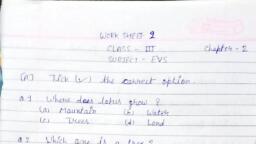 WORK SHEET 2
CLASS - III Chapter - 2
SUBJECT - EVS
(A) Tick (✓) the correct option.
Q.1 Where does lotus grow ?
(a) Mountain (b) Water
(c) Trees (d) Land
Q.2 Which one is a tree ?